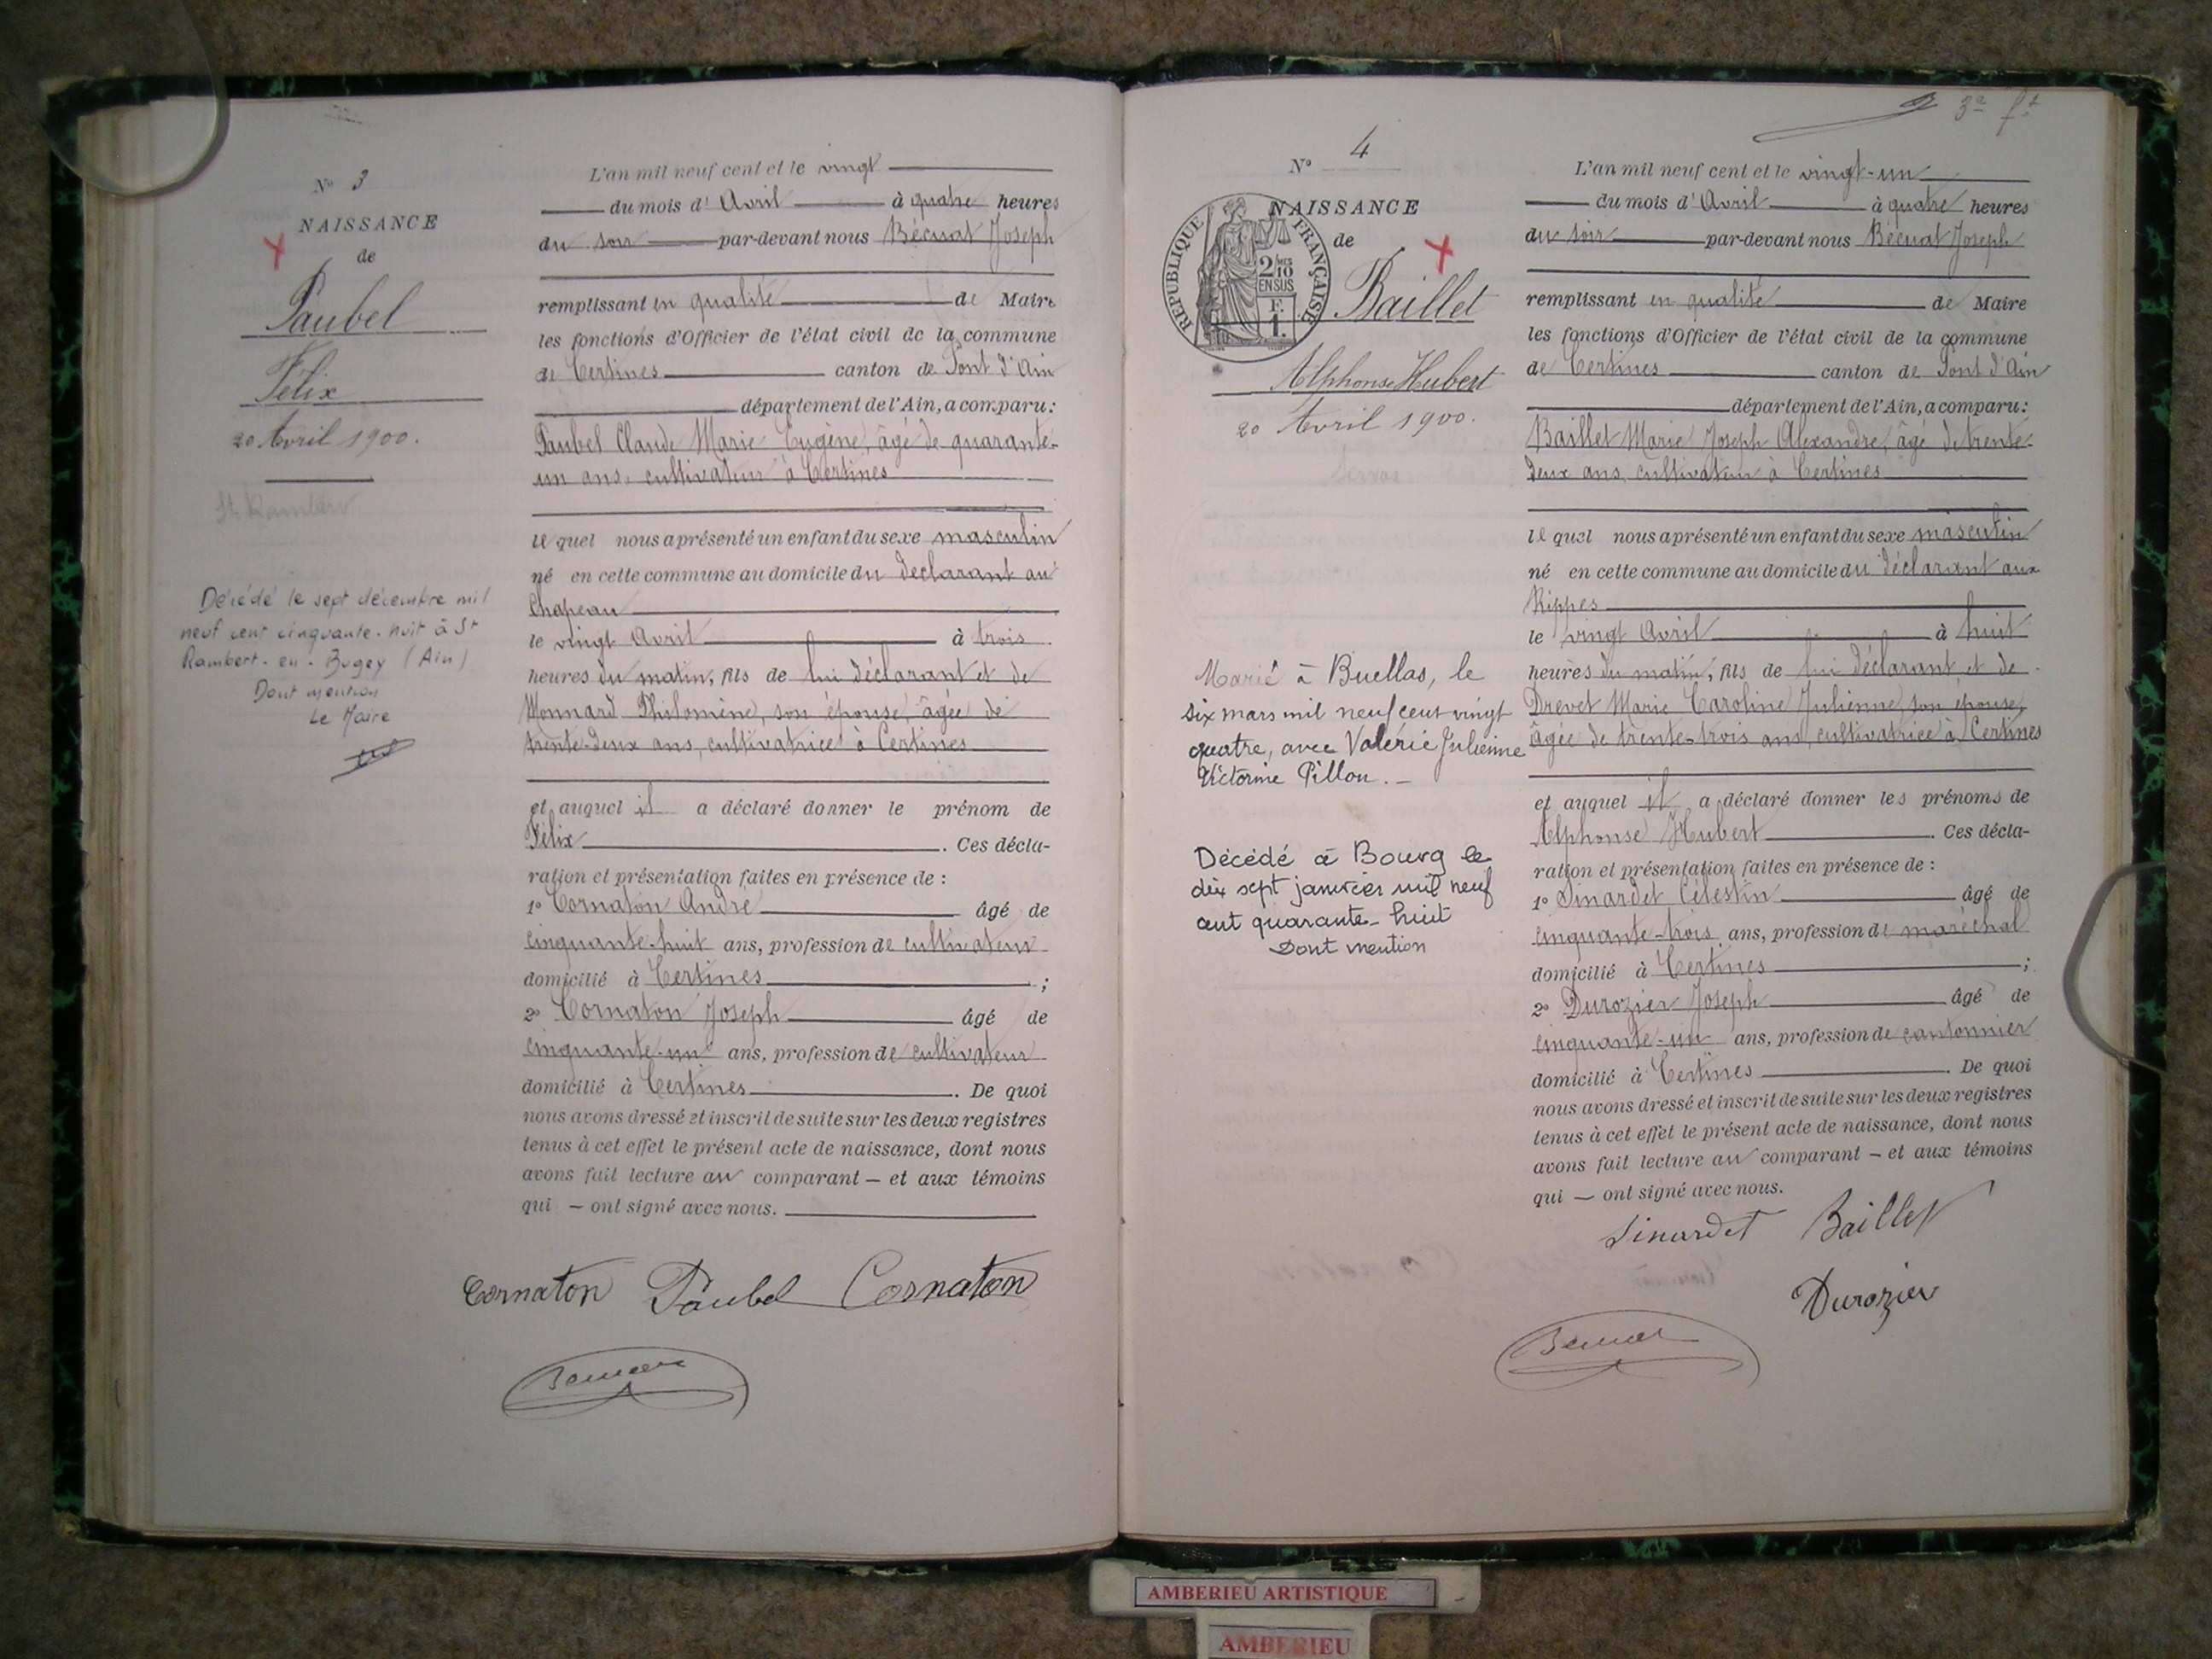 N° 3
NAISSANCE
de
Paubel
Félix
20 Avril 1900.
St Rambert
Décédé le sept décembre mil
neuf cent cinquante-huit à St
Rambert-en-Bugey (Ain)
Dont mention
Le Maire
L'an mil neuf cent et le vingt
du mois d'Avril à quatre heures
du soir par-devant nous Bécuat Joseph
remplissant en qualité de Maire
les fonctions d'Officier de l'état civil de la commune
de Certines canton de Pont d'Ain
département de l'Ain, a comparu :
Paubel Claude Marie Eugène, âgé de quarante-
un ans, cultivateur à Certines
lequel nous a présenté un enfant du sexe masculin
né en cette commune au domicile du déclarant au
Chapeau
le vingt Avril à trois
heures du matin, fils de lui déclarant et de
Monnard Philomène, son épouse, âgée de
trente-deux ans, cultivatrice à Certines
et auquel il a déclaré donner le prénom de
Félix. Ces décla-
ration et présentation faites en présence de :
1° Cornaton André âgé de
cinquante-huit ans, profession de cultivateur
domicilié à Certines ;
2° Cornaton Joseph âgé de
cinquante-un ans, profession de cultivateur
domicilié à Certines. De quoi
nous avons dressé et inscrit de suite sur les deux registres
tenus à cet effet le présent acte de naissance, dont nous
avons fait lecture au comparant — et aux témoins
qui — ont signé avec nous.
Cornaton Paubel Cornaton
Bécuat
N° 4
NAISSANCE
de
REPUBLIQUE FRANÇAISE
2/10 MES
EN SUS
F.
1.
Baillet
Alphonse Hubert
20 Avril 1900.
Servas
Marié à Buellas, le
six mars mil neuf cent vingt
quatre, avec Valérie Julienne
Victorine Pillon.-
Décédé à Bourg le
dix sept janvier mil neuf
cent quarante-huit
Dont mention
L'an mil neuf cent et le vingt-un
du mois d'Avril à quatre heures
du soir par-devant nous Bécuat Joseph
remplissant en qualité de Maire
les fonctions d'Officier de l'état civil de la commune
de Certines canton de Pont d'Ain
département de l'Ain, a comparu :
Baillet Marie Joseph Alexandre, âgé de trente-
deux ans, cultivateur à Certines
lequel nous a présenté un enfant du sexe masculin
né en cette commune au domicile du déclarant aux
Rippes
le vingt Avril à huit
heures du matin, fils de lui déclarant et de
Drevet Marie Caroline Julienne, son épouse,
âgée de trente-trois ans, cultivatrice à Certines
et auquel il a déclaré donner les prénoms de
Alphonse Hubert. Ces décla-
ration et présentation faites en présence de :
1° Sinardet Célestin âgé de
cinquante-trois ans, profession de maréchal
domicilié à Certines ;
2° Durozier Joseph âgé de
cinquante-un ans, profession de cantonnier
domicilié à Certines. De quoi
nous avons dressé et inscrit de suite sur les deux registres
tenus à cet effet le présent acte de naissance, dont nous
avons fait lecture au comparant — et aux témoins
qui — ont signé avec nous.
Sinardet Baillet
Durozier
Bécuat
AMBERIEU ARTISTIQUE
AMBERIEU